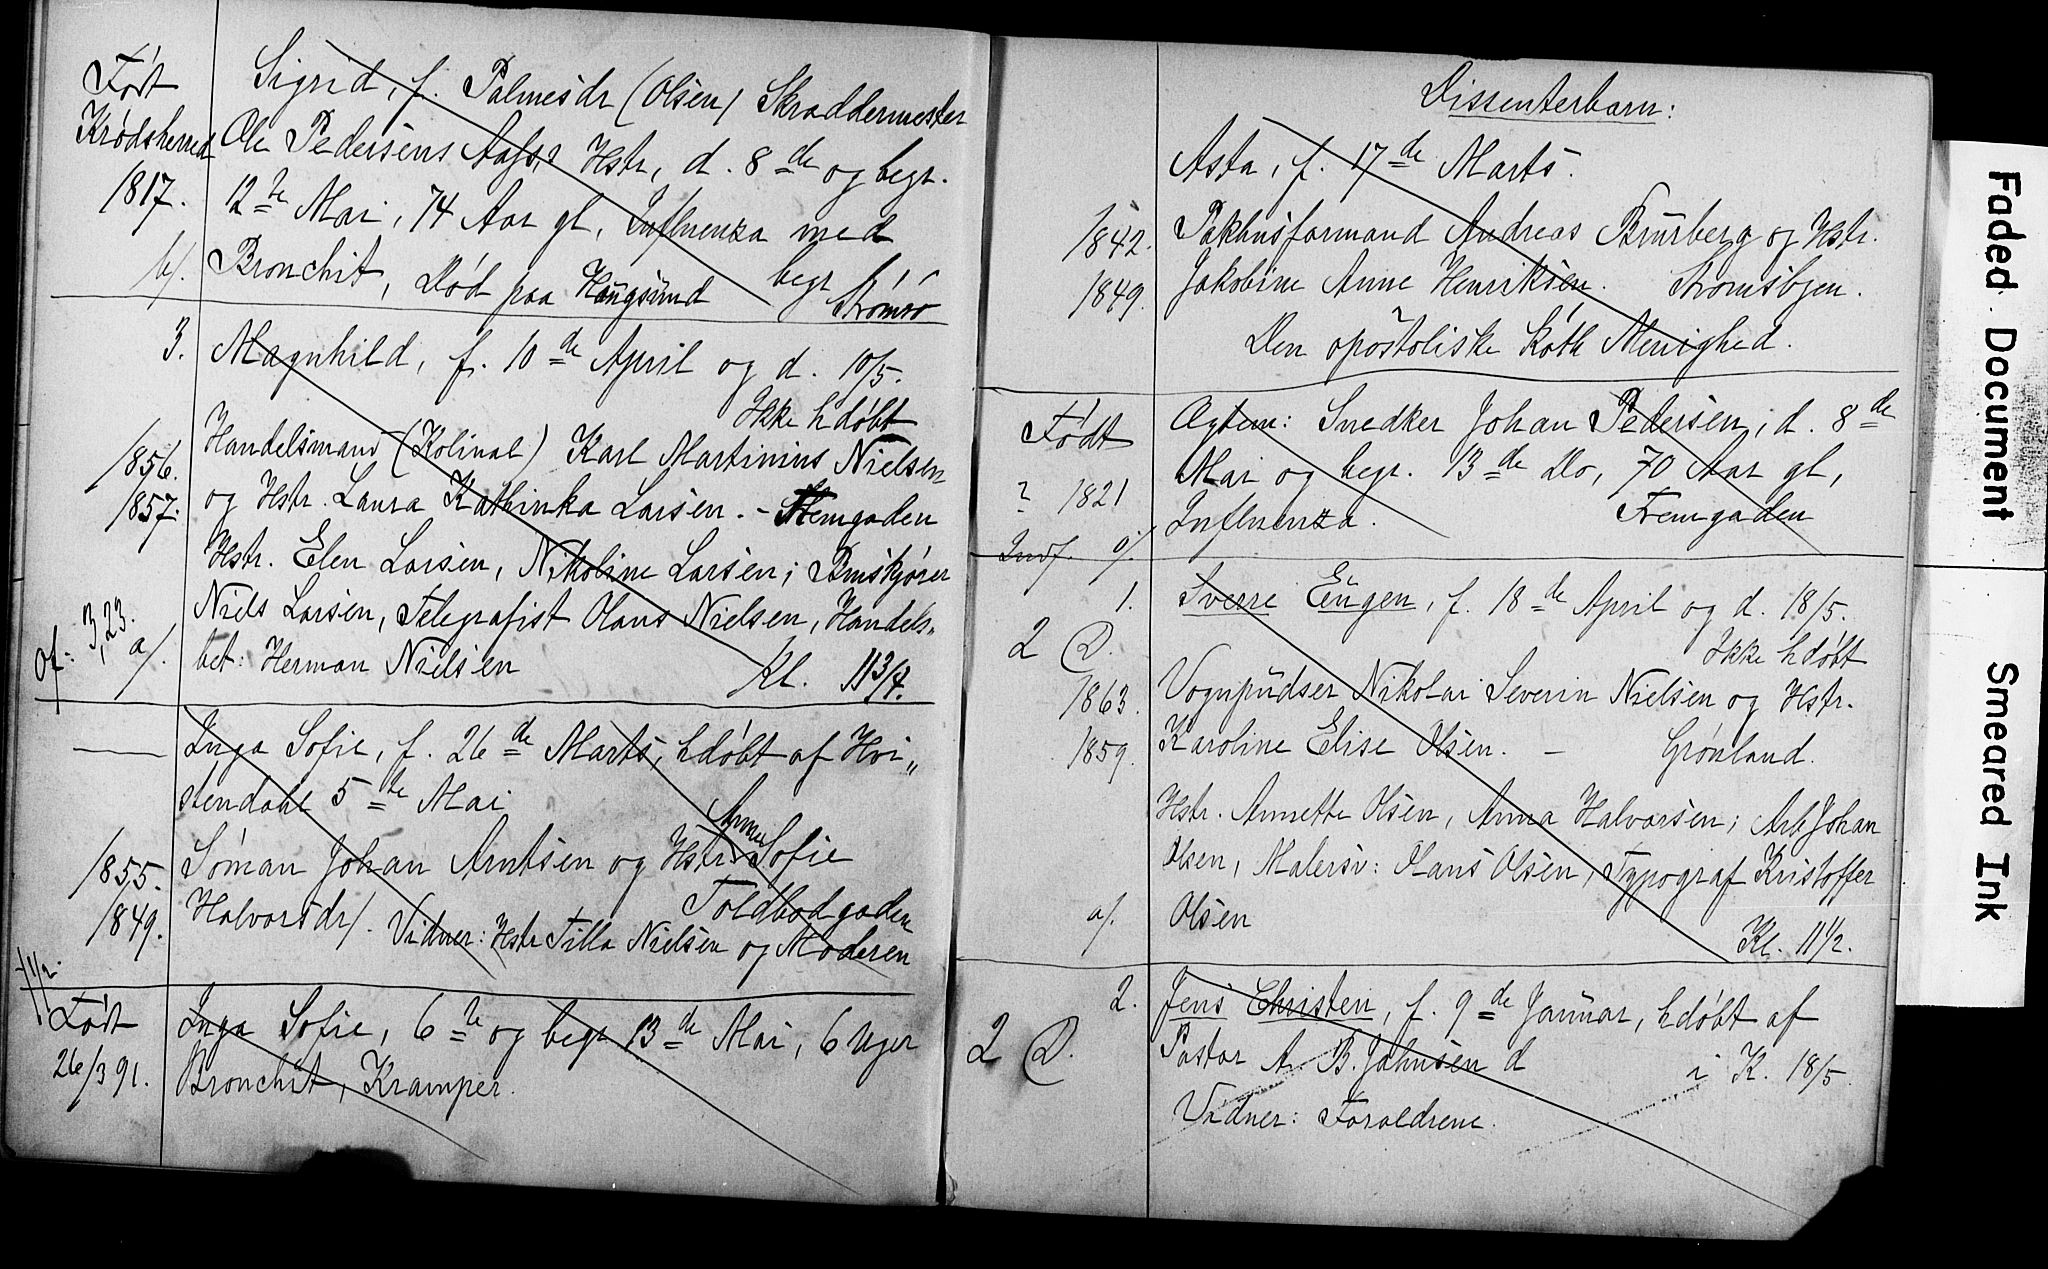 Født
Krødsherred
1817.
b/.
Sigrid, f. Palmesdr (Olsen) Skræddermester
Ole Pedersens Hstr, d. 8de og begr.
12te Mai, 74 Aar gl, Influenza med
Bronchit, Død paa Hougsund begr Strømsø
3. Magnhild, f. 10de April og d. 10/5.
Ikke hdøbt
1856. Handelsmand (Kolinal) Karl Martinius Nielsen
1857. og Hstr. Laura Kathinka Larsen. - Fremgaden
Hstr. Elen Larsen, Nikoline Larsen; Buskjører
Niels Larsen, Telegrafist Olaus Nielsen, Handels„
bet: Herman Nielsen Kl. 11 3/4.
Of: 3,23. a/.
Inga Sofie, f. 26de Marts, hdøbt af Hvi„
stendahl 5te Mai
1855. Søman Johan Arntsen og Hstr Anna Sofie
1849. Halvorsdr/. Toldbodgaden
Vidner: Hstr Tilla Nielsen og Moderen
11 1/2.
Født
26/3 91.
Inga Sofie, 6te og begr 13de Mai, 6 Uger
Bronchit, Kramper.
Dissenterbarn:
Asta, f. 17de Marts.
1842. Pakhusformand Andreas Brurberg og Hstr.
1849. Jakobine Anne Henriksen. Strømsbyen.
Den apostoliske Kath Menighed.
Født
? 1821
Indf. a/.
Ægtem: Snedker Johan Pedersen, d. 8de
Mai og begr. 13de Do, 70 Aar gl,
Influenza. Fremgaden
1. Sverre Eugen, f. 18de April og d. 18/5.
2 D. Ikke hdøbt
1863. Vognpudser Nikolai Severin Nielsen og Hstr.
1859. Karoline Elise Olsen. - Grønland.
Hstr. Annette Olsen, Anna Halvorsen; Arb Johan
Olsen, Malersv: Hans Olsen, Typograf Kristoffer
a/. Olsen Kl. 11 1/2.
2. Jens Christen, f. 9de Januar, hdøbt af
2 D. Pastor A. B. Johnsen d i K. 18/5
Vidner: Forældrene.
Faded Document
Smeared Ink